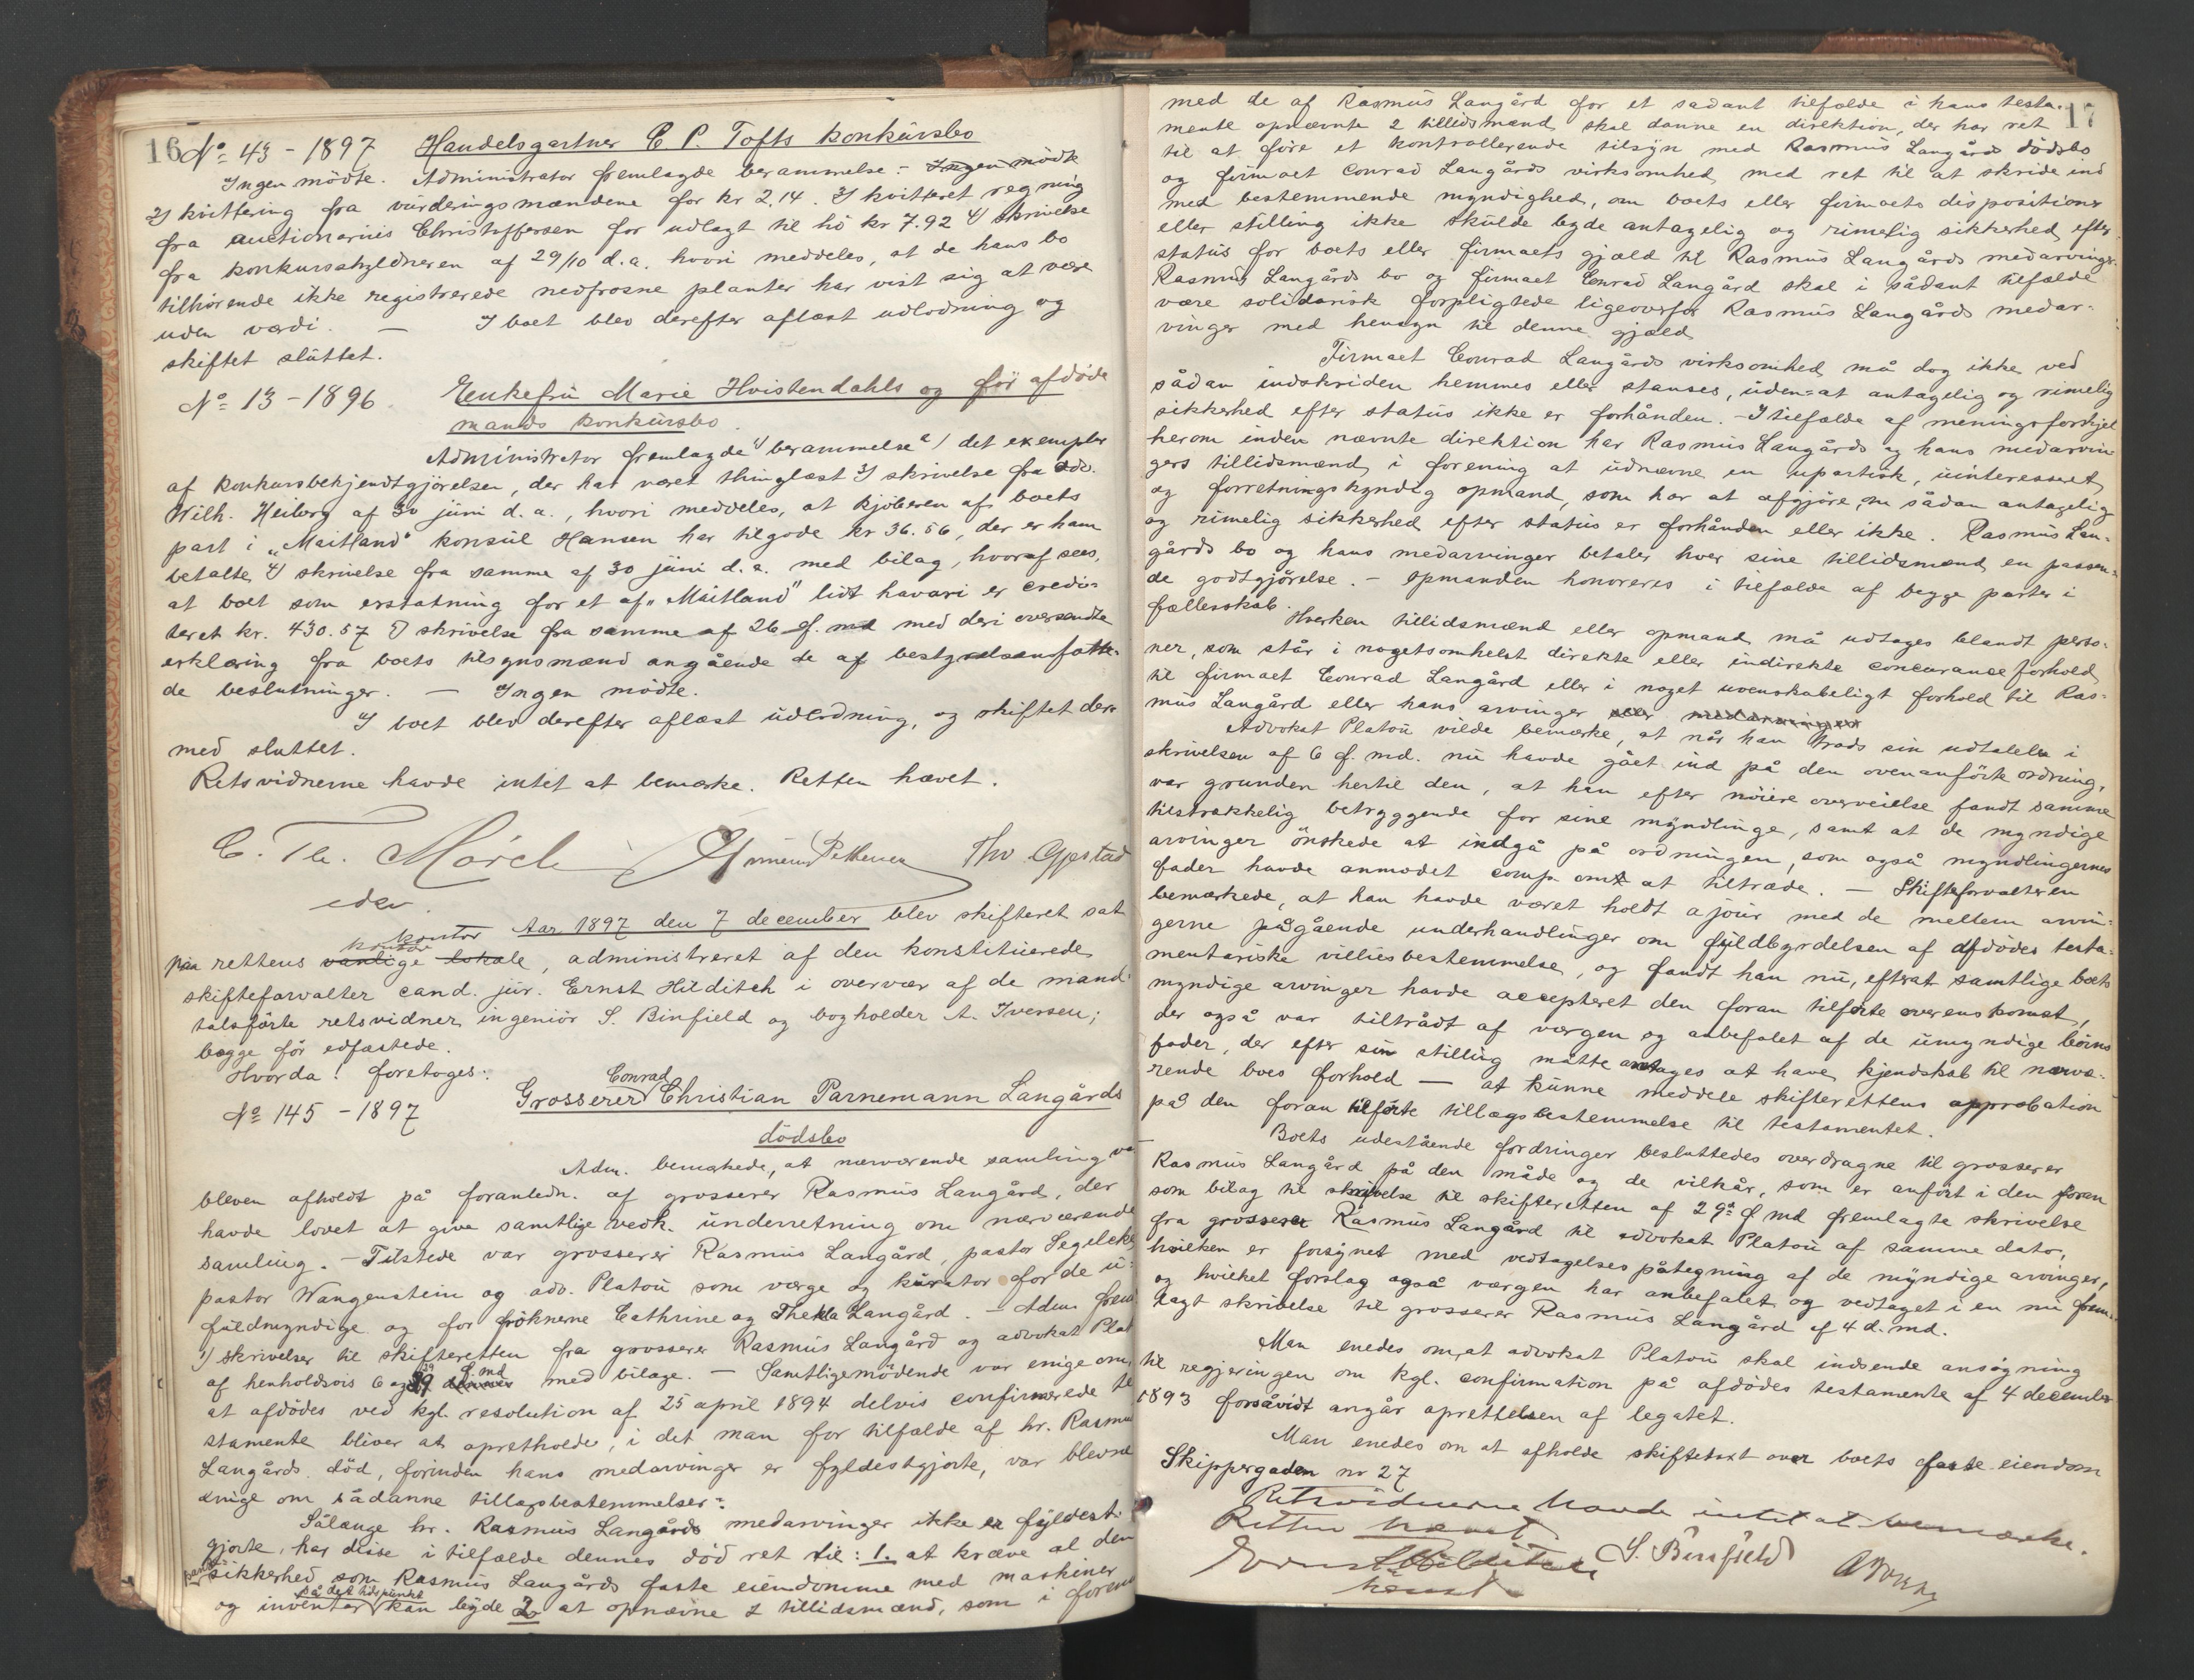 16
No 43 - 1897 Handelsgartner C P. Tofts konkursbo
Ingen mödte. Administrator fremlagde berammelse - Ingen mödte
2) kvittering fra vurderingsmændene for kr 2,14. 3) kvitteret regning
fra auctionarius Christoffersen for udlagt til hö kr 7.92 4) skrivelse
fra konkursskyldneren af 29/10 d.a. hvori meddeles, at de hans bo
tilhörende ikke registrerede nedfrosne planter har vist sig at være
uden værdi. — I boet blev derefter aflæst udlodning og
skiftet sluttet.
No 13 - 1896 Enkefru Marie Hvistendahls og för afdöde
mands konkursbo.
Administrator fremlagde 1) berammelse 2) det exemplar
af konkursbekjendtgjörelsen, der har været thinglæst 3) skrivelse fra adv.
Wilh. Heiberg af 30 juni d.a., hvori meddeles, at kjöberen af boets
part i „Maitland" konsul Hansen har tilgode kr 36.56, der er ham
betalte, 4) skrivelse fra samme af 30 juni d.a. med bilag, hvoraf sees,
at boet som erstatning for et af „Maitland" lidt havari er credi=
teret kr. 430.57 5) skrivelse fra samme af 26 f. md med deri oversendte
erklæring fra boets tilsynsmænd angående de af bestyrelsen fatte=
de beslutninger. — Ingen mödte.
I boet blev derefter aflæst udlodning, og skiftet der=
med sluttet.
Retsvidnerne havde intet at bemærke. Retten hævet.
C. Th. Mörch Pettersen Thv. Gjestad
eder.
Aar 1897 den 7 december blev skifteret sat
kontor kontor
paa rettens vanlige lokale, administreret af den konstituerede
skifteforvalter cand. jur. Ernst Hilditch i overvær af de mand=
talsförte retsvidner, ingeniör S. Binfield og bogholder A. Iversen;
begge för edfæstede.
Hvorda! foretoges:
Conrad
No 145 - 1897 Grosserer Christian Parnemann Langårds
dödsbo
Adm. bemærkede, at nærværende samling var
bleven afholdt på foranledn. af grosserer Rasmus Langård, der
havde lovet at give samtlige vedk. underretning om nærværende
samling. - Tilstede var grosserer Rasmus Langård, pastor Segelcke
pastor Wangenstein og adv. Platou som værge og kurator for de u=
fuldmyndige og for fröknerne Cathrine og Thekla Langård. - Adm. frem
1) skrivelser til skifteretten fra grosserer Rasmus Langård og advokat Plat
29 f. md
af henholdsvis 6 og 29 med bilage. — Samtlige mödende var enige om,
at afdödes ved kgl. resolution af 25 april 1894 delvis confirmerede te
stamente bliver at opretholde, i det man for tilfælde af hr. Rasmus
Langårds död, forinden hans medarvinger er fyldestgjorte, var blevne
enige om sådanne tillægsbestemmelser:
Sålænge hr. Rasmus Langårds medarvinger ikke er fyldest=
gjorte, har disse i tilfælde dennes död ret til: 1. at kræve al den
pante
sikkerhed som Rasmus Langårds faste eiendomme med maskiner
på det tidspunkt
og inventar kan byde 2. at opnævne 2 tillidsmænd, som i foren
17
med de af Rasmus Langård for et sådant tilfælde i hans testa=
mente opnævnte 2 tillidsmænd skal danne en direktion, der har ret
til at före et kontrollerende tilsyn med Rasmus Langårds dödsbo
og firmaet Conrad Langårds virksomhed, med ret til at skride ind
med bestemmende myndighed, om boets eller firmaets dispositioner
eller stilling ikke skulde byde antagelig og rimelig sikkerhed efter
status for boets eller firmaets gjæld til Rasmus Langårds medarvinger.
Rasmus Langårds bo og firmaet Conrad Langård skal i sådant tilfælde
være solidarisk forpligtede ligeoverfor Rasmus Langårds medar=
vinger med hensyn til denne gjæld
Firmaet Conrad Langårds virksomhed må dog ikke ved
sådan indskriden hemmes eller stanses, uden=at antagelig og rimelig
sikkerhed efter status ikke er forhånden. - I tilfælde af meningsforskjel
herom inden nævnte direktion har Rasmus Langårds og hans medarvin=
gers tillidsmænd i forening at udnævne en upartisk, uinteresseret
og forretningskyndig opmand, som har at afgjöre, om sådan antagelig
og rimelig sikkerhed efter status er forhånden eller ikke. Rasmus Lan=
gårds bo og hans medarvinger betaler hver sine tillidsmænd en passen=
de godtgjörelse. - Opmanden honoreres i tilfælde af begge parter i
fællesskab.
Hverken tillidsmænd eller opmand må udtages blandt perso=
ner, som står i nogetsomhelst direkte eller indirekte concurance forhold
til firmaet Conrad Langård eller i noget uvenskabeligt forhold til Ras=
mus Langård eller hans arvinger eller medarvinger
Advokat Platou vilde bemærke, at når han trods sin udtalelse i
skrivelsen af 6 f. md. nu havde gået ind på den ovenanförte ordning,
var grunden hertil den, at han efter nöiere overveielse fandt samme
tilstrækkelig betryggende for sine myndlinge, samt at de myndige
arvinger önskede at indgå på ordningen, som også myndlingernes
fader havde anmodet comp. om at tiltræde. — Skifteforvalteren
bemærkede, at han havde været holdt ajour med de mellem arvin=
gerne pågående underhandlinger om fuldbyrdelsen af afdödes testa=
mentariske villiesbestemmelse, og fandt han nu, efterat samtlige boets
myndige arvinger havde accepteret den foran tilförte overenskomst,
der også var tiltrådt af værgen og anbefalet af de umyndige börns
fader, der efter sin stilling måtte antages at have kjendskab til nærvæ=
rende boes forhold — at kunne meddele skifterettens approbation
på den foran tilförte tillægsbestemmelse til testamentet.
Boets udestående fordringer besluttedes overdragne til grosserer
Rasmus Langård på den måde og de vilkår, som er anfört i den foran
som bilag til skrivelse til skifteretten af 29de f md fremlagte skrivelse
fra grosserer Rasmus Langård til advokat Platou af samme dato,
hvilken er forsynet med vedtagelsespåtegning af de myndige arvinger,
og hvilket forslag også værgen har anbefalet og vedtaget i en nu frem=
lagt skrivelse til grosserer Rasmus Langård af 4 d. md.
Man enedes om, at advokat Platou skal indsende ansögning
til regjeringen om kgl. confirmation på afdödes testamente af 4 december
1893 forsåvidt angår oprettelsen af legatet.
Man enedes om at afholde skiftetaxt over boets faste eiendom
Skippergaden nr 27
Retsvidnerne havde intet at bemærke.
Retten hævet.
Ernst Hilditch S. Binfield
const